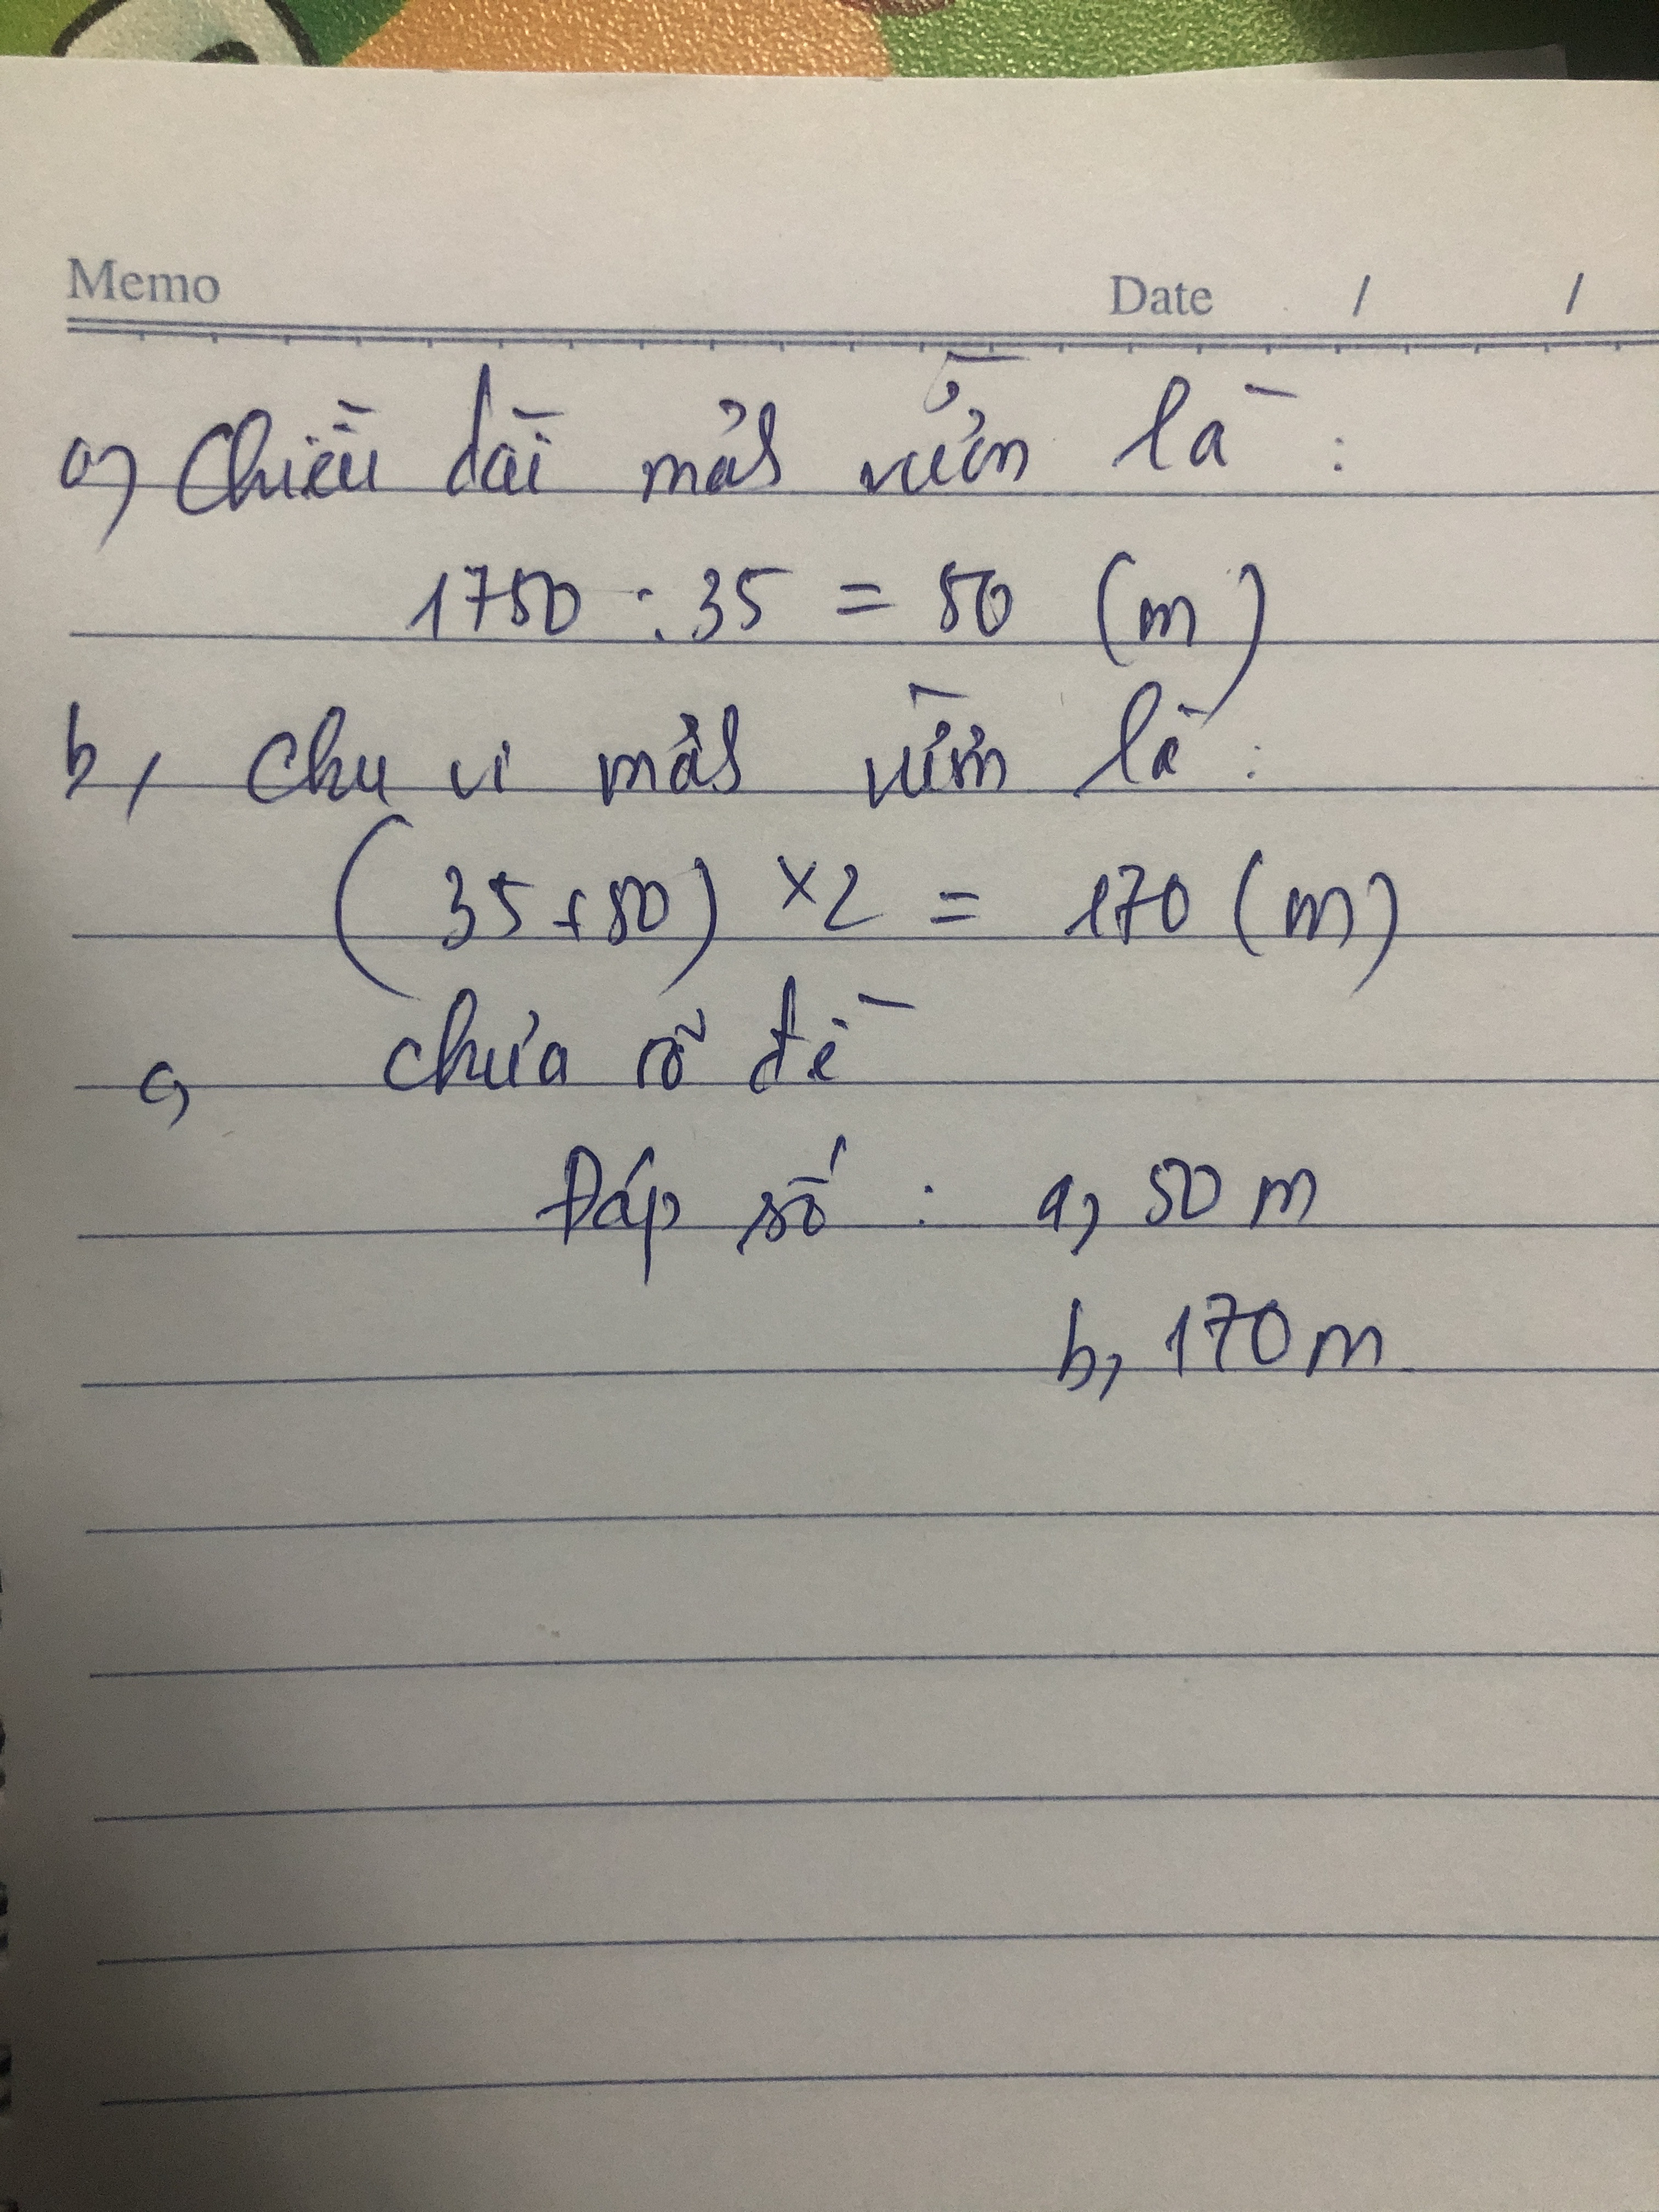 Memo Date / /
a, Chiều dài mảh vườn là :
1750 : 35 = 50 (m)
b, Chu vi mảh vườn là :
(35+50) ×2 = 170 (m)
c, chưa rõ đề
Đáp số : a, 50 m
b, 170 m